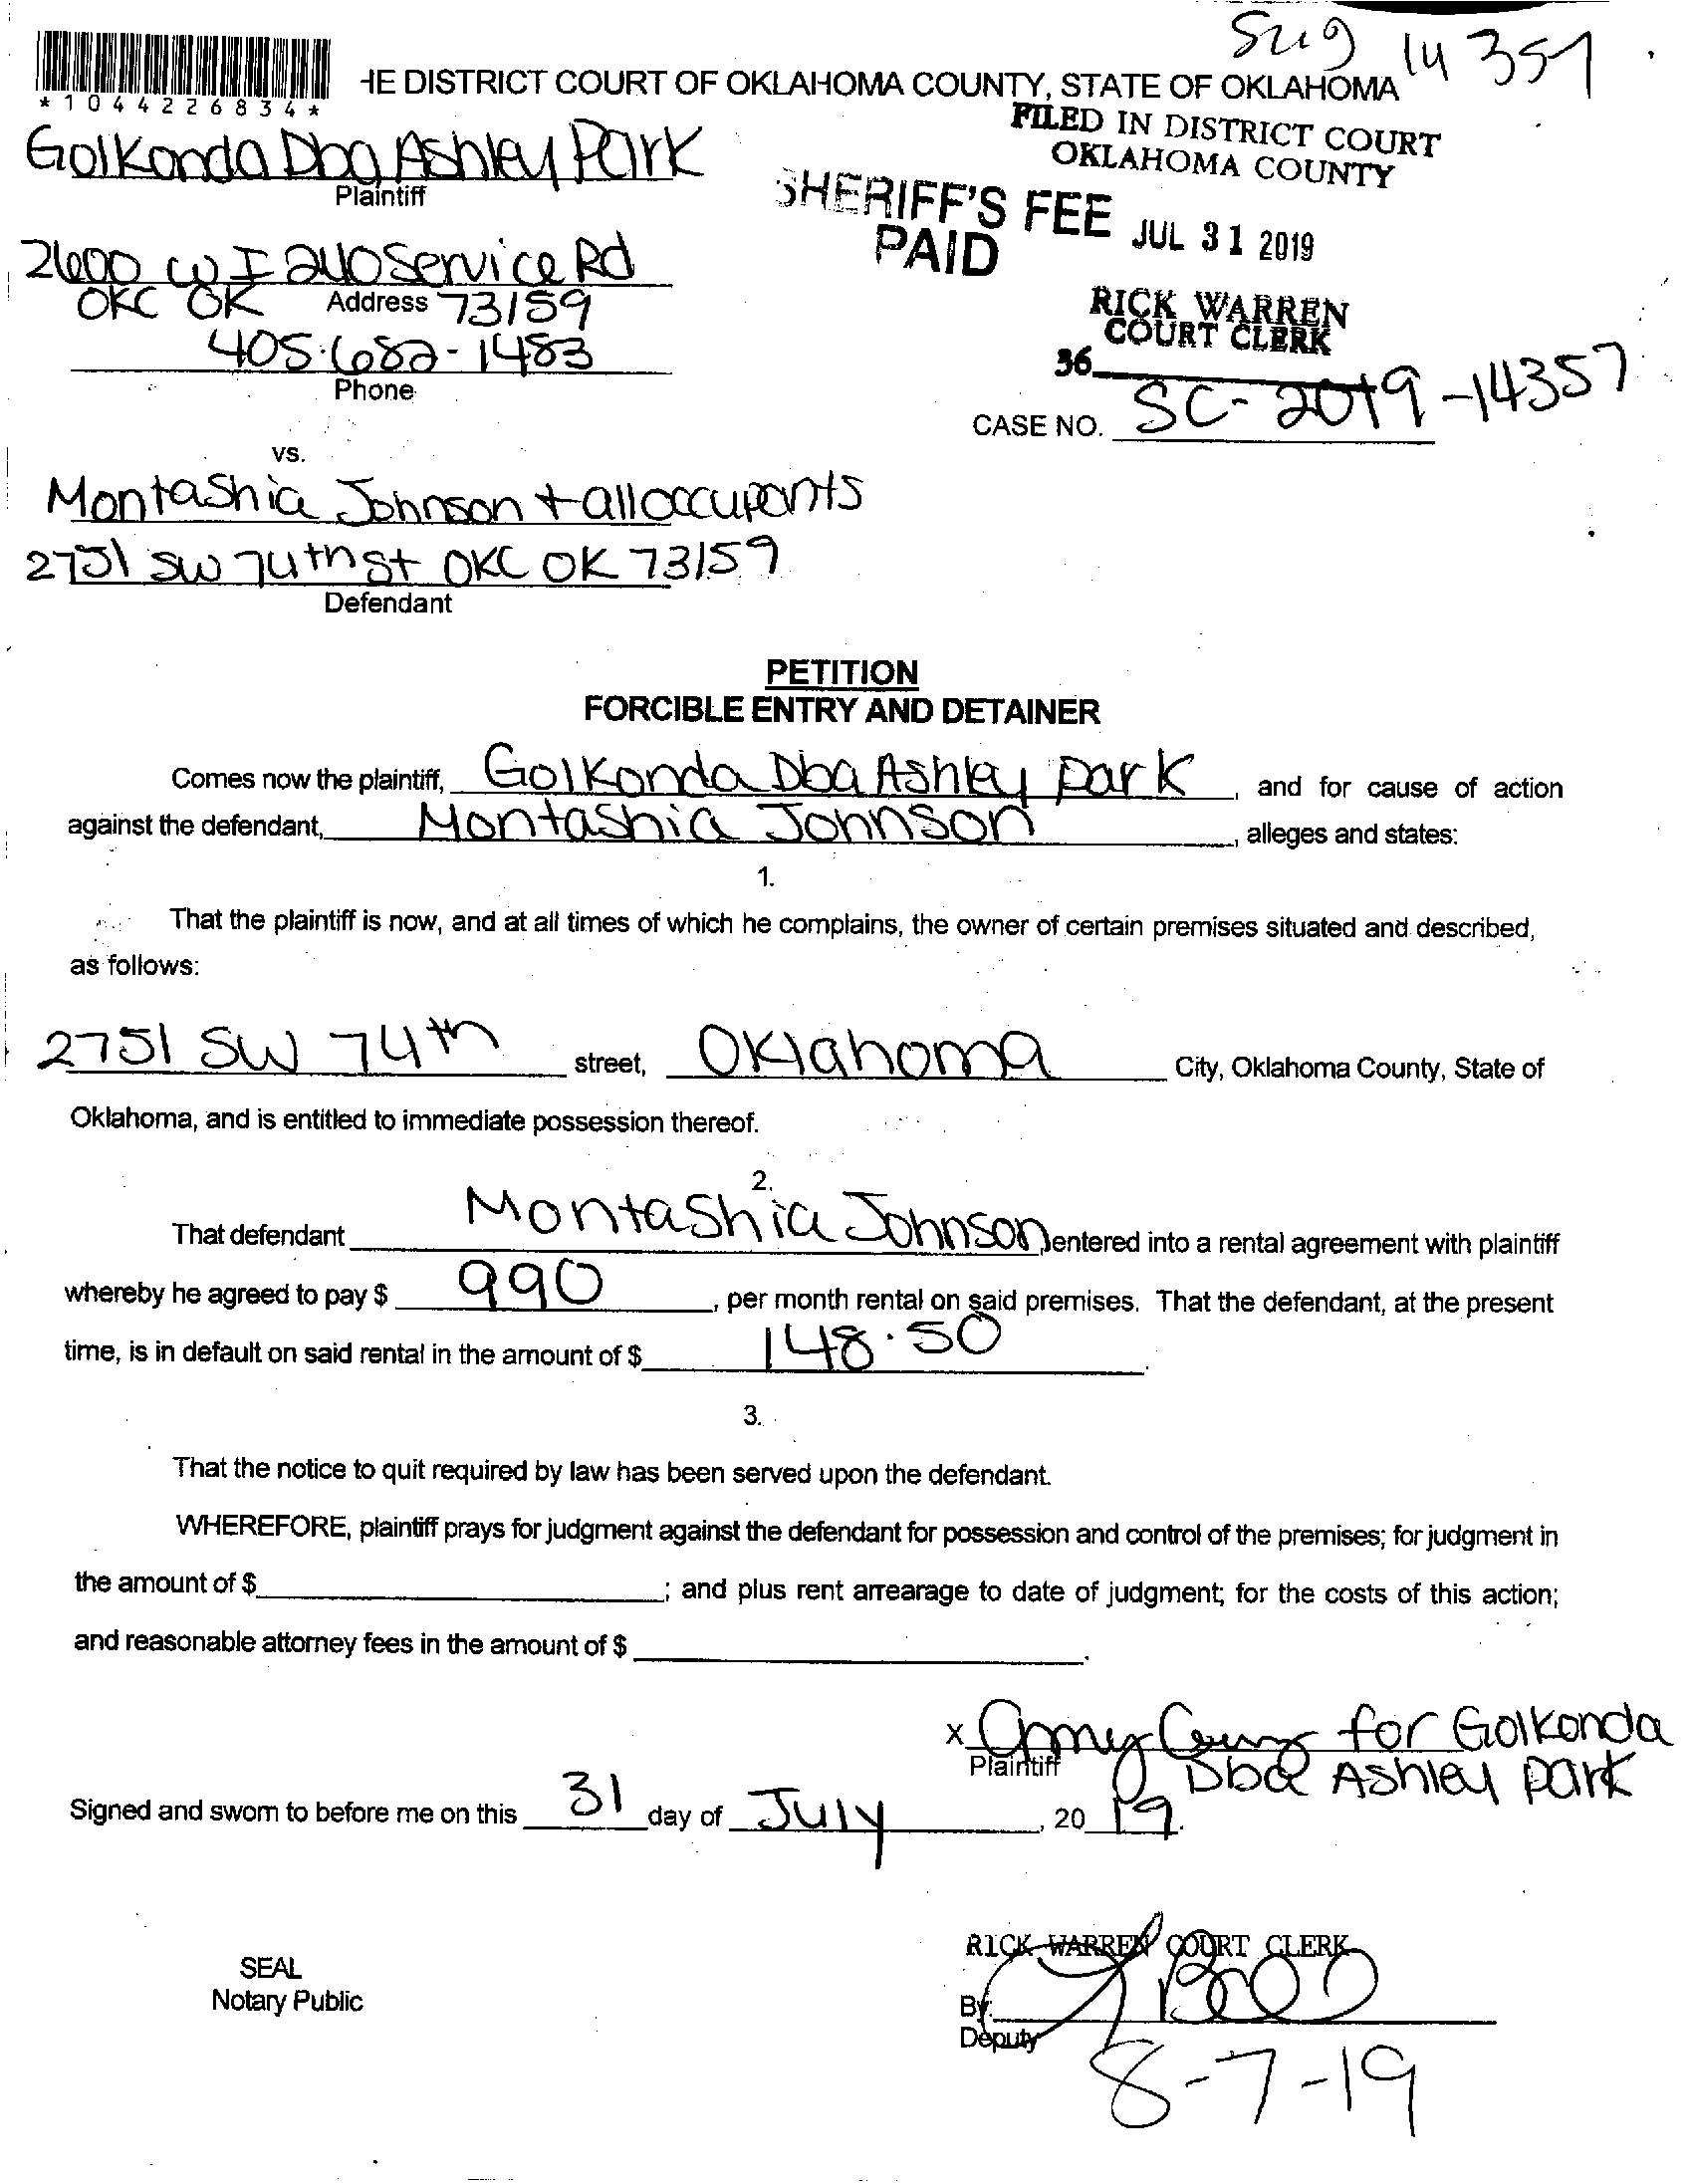 14 357
*1044226834*
HE DISTRICT COURT OF OKLAHOMA COUNTY, STATE OF OKLAHOMA
FILED IN DISTRICT COURT
OKLAHOMA COUNTY
Golkonda Dba Ashley Park
Plaintiff
SHERIFF'S FEE
PAID
JUL 31 2019
2600 W I 240 Service Rd
OKC OK Address 73159
RICK WARREN
COURT CLERK
405-682-1483
Phone
36
CASE NO. SC-2019-14357
vs.
Montashia Johnson + all occupants
2751 SW 74th St OKC OK 73159
Defendant
PETITION
FORCIBLE ENTRY AND DETAINER
Comes now the plaintiff, Golkonda Dba Ashley Park, and for cause of action
against the defendant, Montashia Johnson, alleges and states:
1.
That the plaintiff is now, and at all times of which he complains, the owner of certain premises situated and described,
as follows:
2751 SW 74th street, Oklahoma City, Oklahoma County, State of
Oklahoma, and is entitled to immediate possession thereof.
2.
That defendant Montashia Johnson entered into a rental agreement with plaintiff
whereby he agreed to pay $ 990, per month rental on said premises. That the defendant, at the present
time, is in default on said rental in the amount of $ 148.50.
3.
That the notice to quit required by law has been served upon the defendant.
WHEREFORE, plaintiff prays for judgment against the defendant for possession and control of the premises; for judgment in
the amount of $ ; and plus rent arrearage to date of judgment; for the costs of this action;
and reasonable attorney fees in the amount of $ .
x Amy for Golkonda
Plaintiff Dba Ashley Park
Signed and sworn to before me on this 31 day of July, 20 19.
RICK WARREN COURT CLERK
SEAL
Notary Public
By:
Deputy
8-7-19